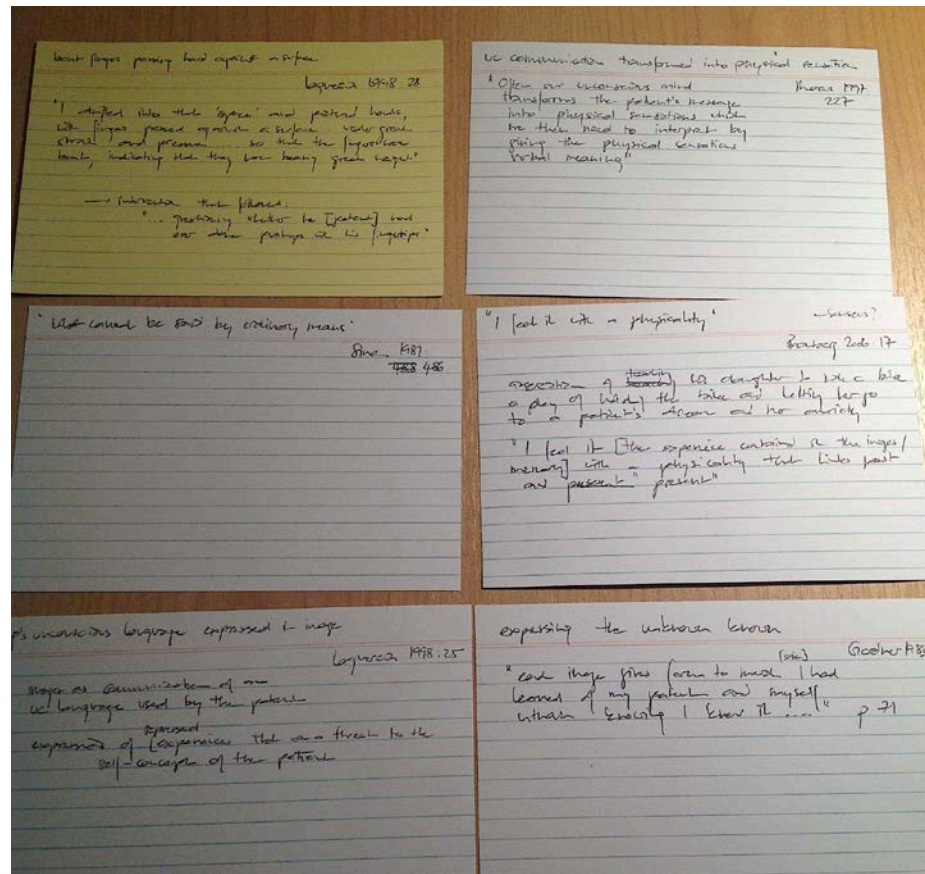 bent fingers pressing hard against a surface
1998: 28
"I drifted into that 'space' and pictured hands,
with fingers pressed against a surface under great
stress and pressure ... so that the fingers were
bent, indicating that they were bearing great weight"
→ interaction that followed:
"... questioning whether he [patient] had
ever done pushups with his fingertips"
uc communication transformed into physical sensation
"Often our unconscious mind
1997
227
transforms the patient's message
into physical sensations which
we then need to interpret by
giving the physical sensations
verbal meaning"
'What cannot be said by ordinary means'
1987:
488 486
"I feel it with a physicality"
– senses?
2006: 17
of teaching his daughter to ride a bike
a day of holding the bike and letting her go
to a patient's dream and her anxiety
"I feel it [the experience contained in the images/
memory] with a physicality that links past
and present" present"
p's unconscious language expressed + image
1998: 25
images as communication of an
uc language used by the patient
expressed
expressed of [experiences that are a threat to the
self-concept of the patient
expressing the unknown known
[sic]
"each image gives form to much I had
learned of my patient and myself
without knowing I knew it ...." p 71